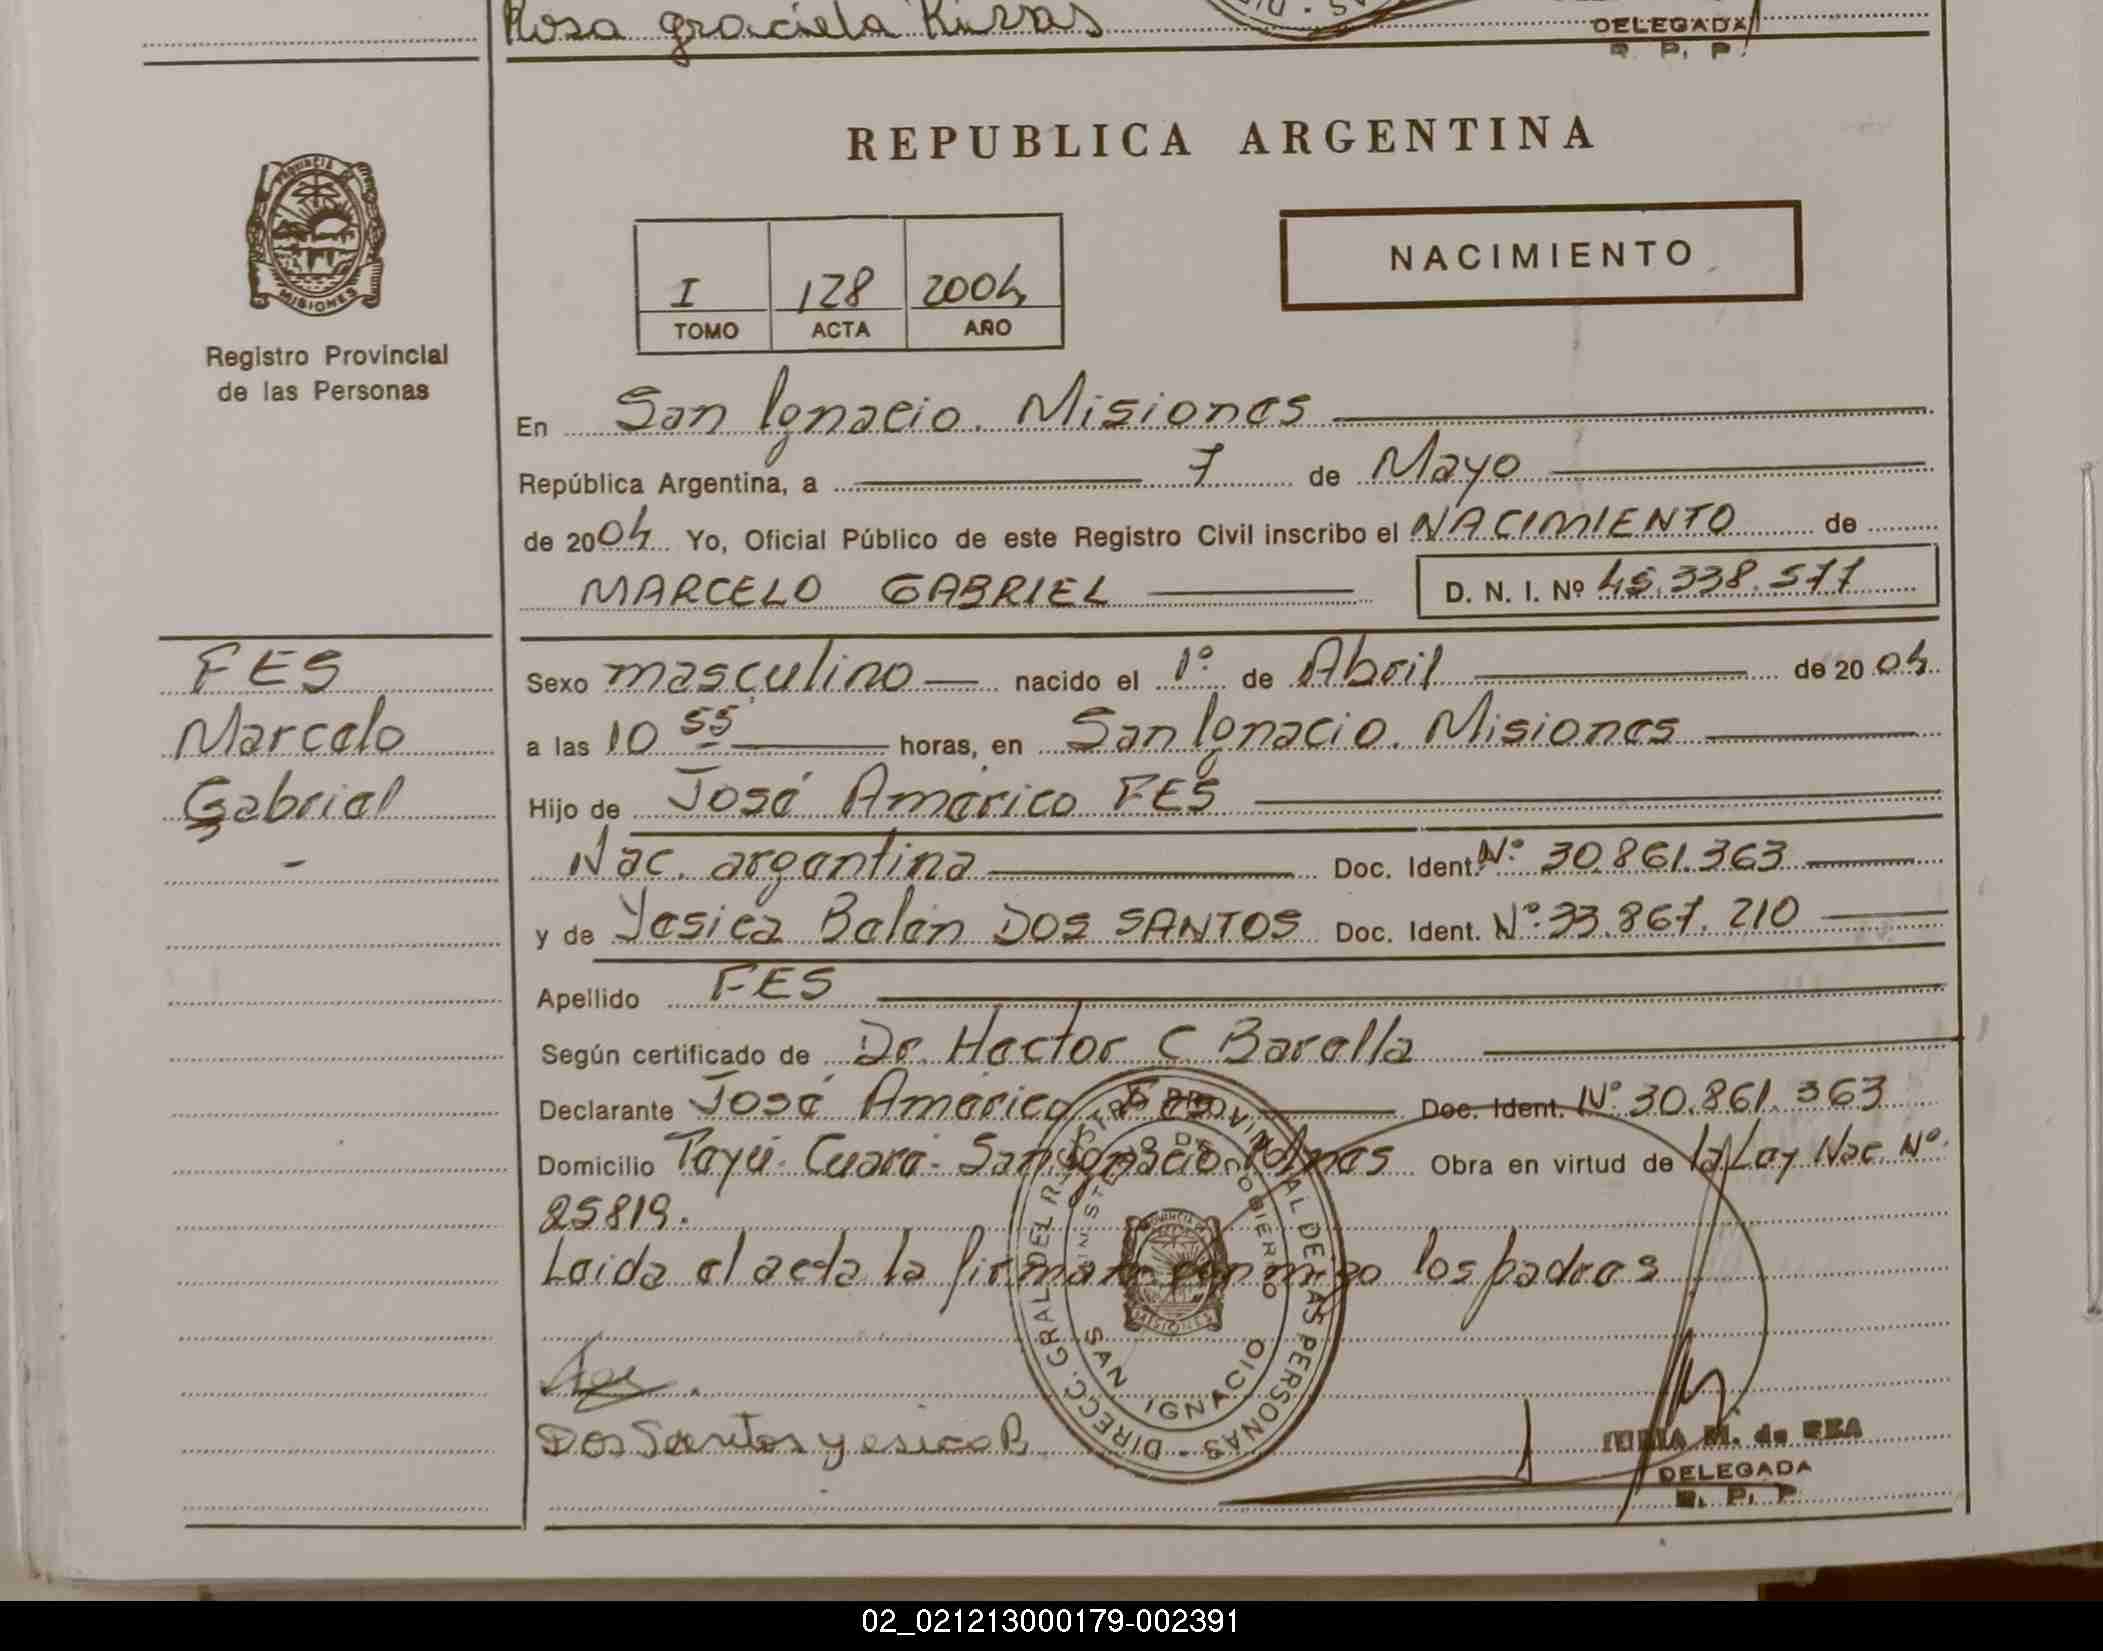 Rosa graciela Kuzas
DELEGADA
R. P. P.
PROVINCIA DE
MISIONES
Registro Provincial
de las Personas
REPUBLICA ARGENTINA
NACIMIENTO
I 128 2004
TOMO ACTA AÑO
En San Ignacio. Misiones
República Argentina, a 7 de Mayo
de 2004 Yo, Oficial Público de este Registro Civil inscribo el NACIMIENTO de
MARCELO GABRIEL D. N. I. Nº 45.338.577
FES
Marcelo
Gabriel
Sexo masculino nacido el 1º de Abril de 2004
a las 10 55 horas, en San Ignacio. Misiones
Hijo de José Américo FES
Nac. argentina Doc. Ident. Nº 30.861.363
y de Yesica Belén DOS SANTOS Doc. Ident. Nº 33.867.210
Apellido FES
Según certificado de Dr. Hector C Barella
Declarante José Américo Fes Doc. Ident. Nº 30.861.363
Domicilio Teyú Cuaré - San Ignacio. Mnes Obra en virtud de la Ley Nac Nº
25819.
Leida el acta la firman conmigo los padres
Dos Santos yesica B
DIRECC. GRAL DEL REGISTRO PROVINCIAL DE LAS PERSONAS
MINISTERIO DE GOBIERNO
SAN IGNACIO
MISIONES
M. de REA
DELEGADA
R. P. P.
02_021213000179-002391